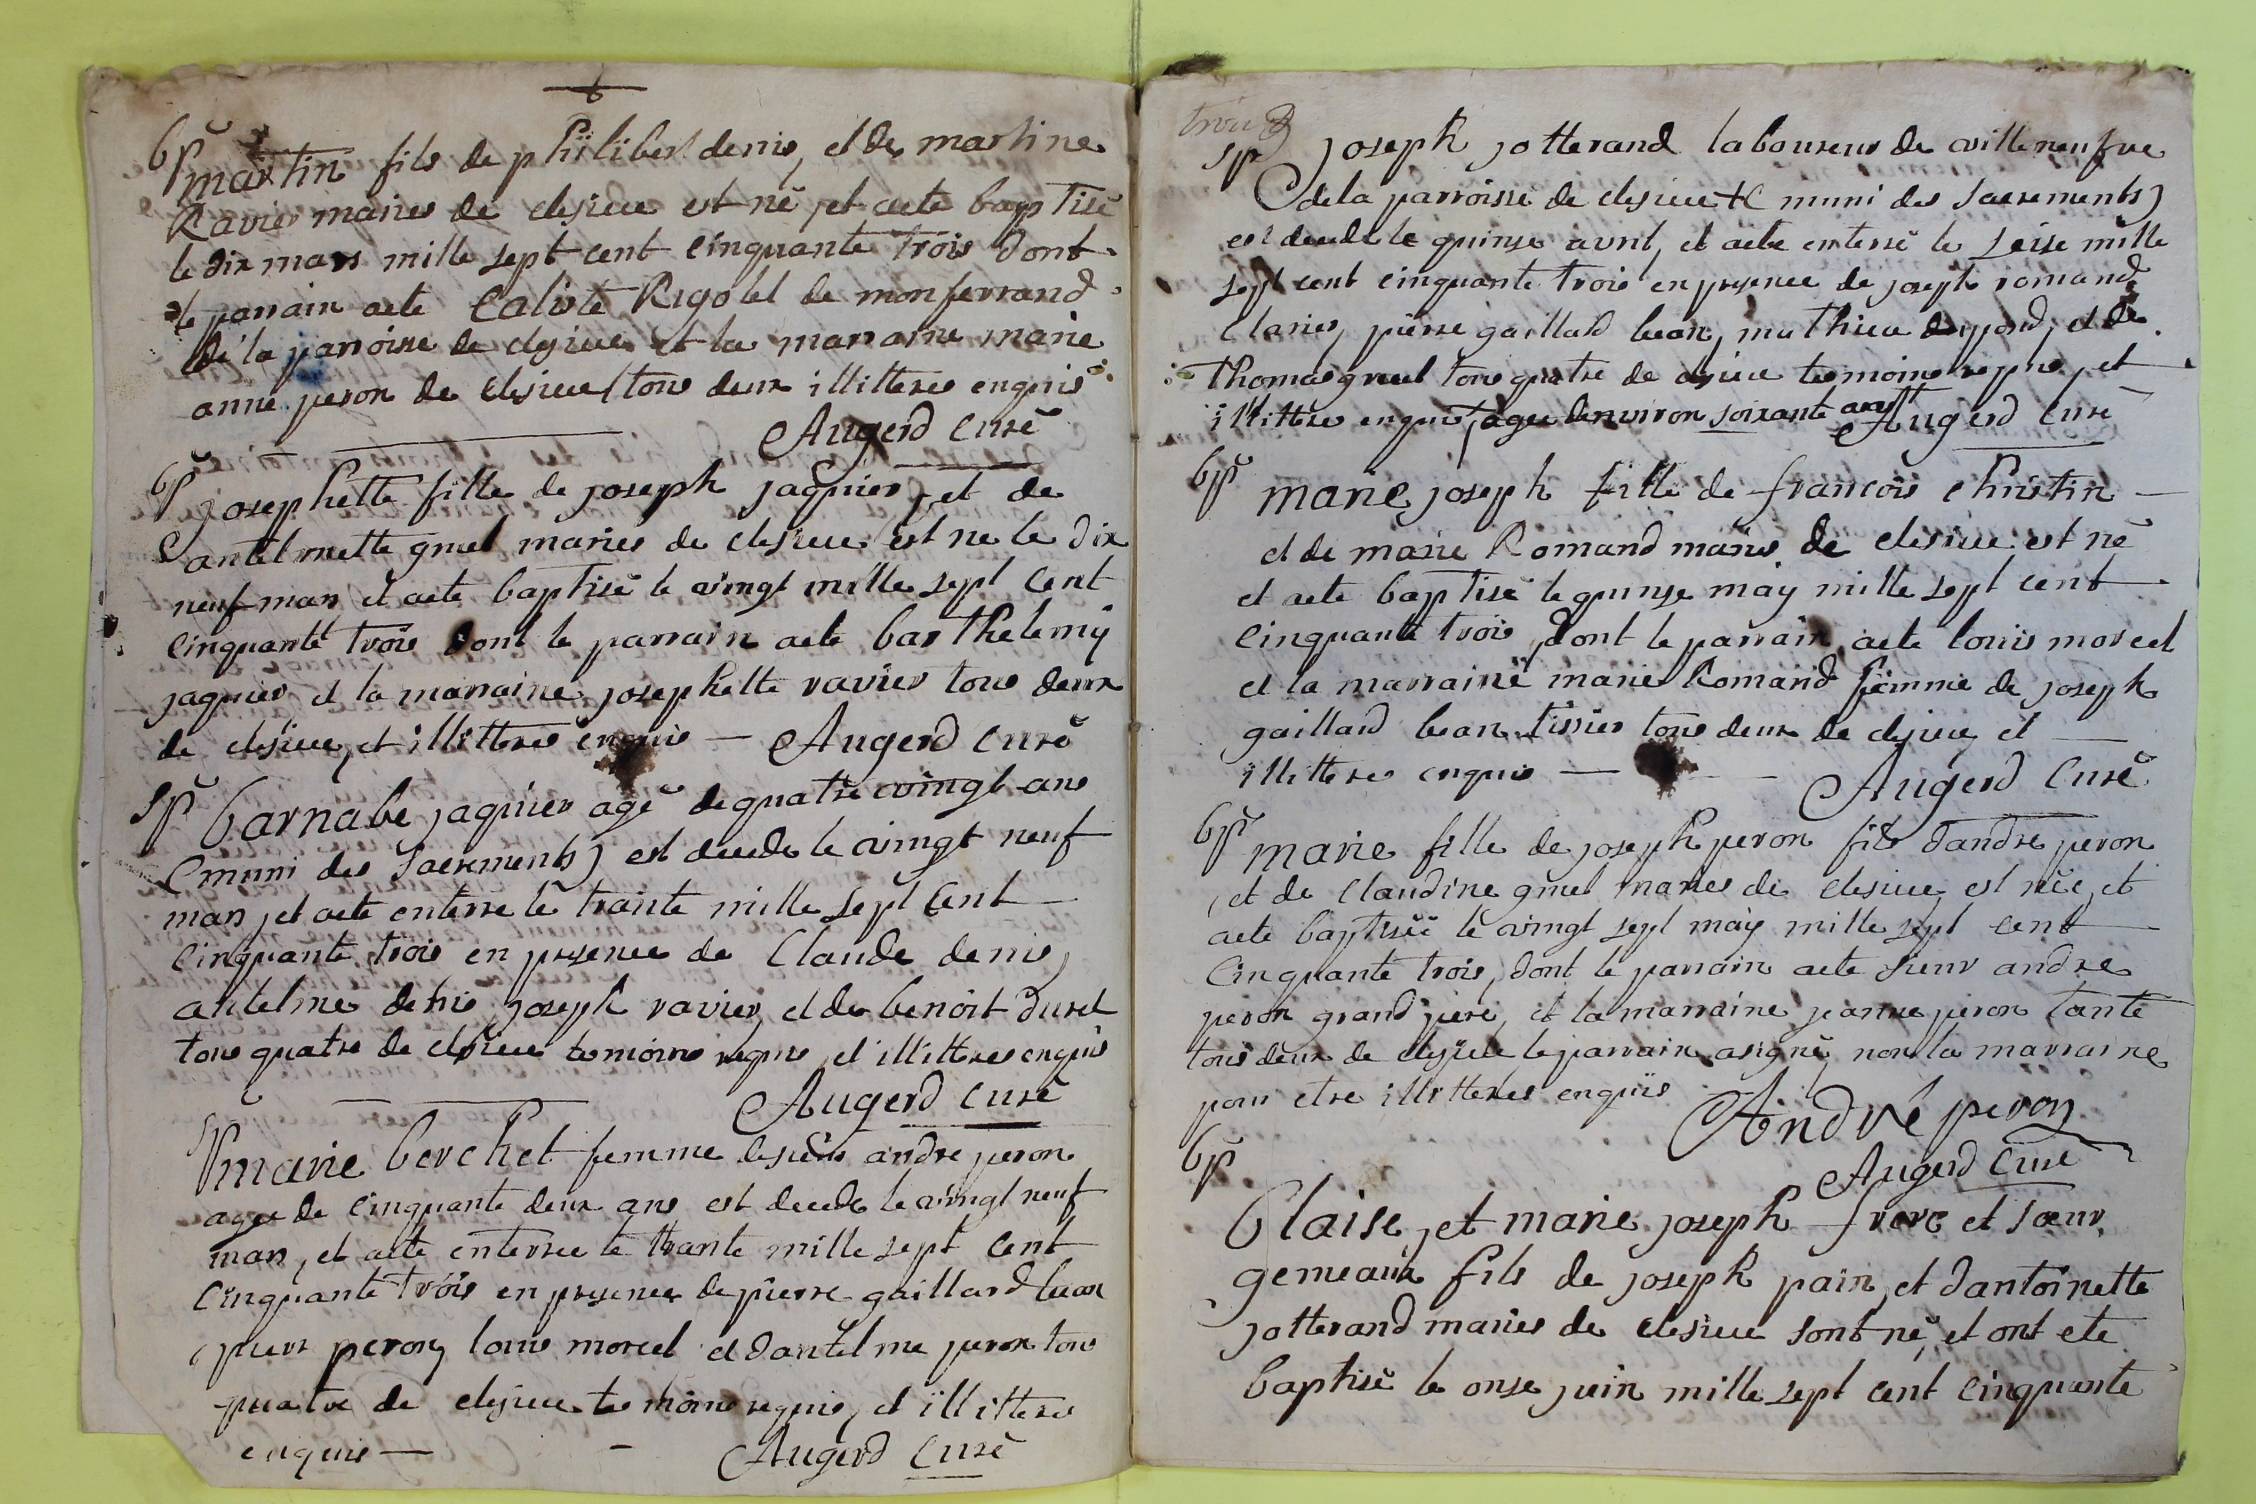 bp
martin fils de philibert denis, et de martine
Ravier maries de clesieu est né, et aeté baptisé
le dix mars mille sept cent cinquante trois dont
le parrain aeté Calixte Rigolet de monferrand
de la parroisse de clesieu et la marraine marie
anne peron de clesieu tous deux illitteres enquis
Augerd curé
bp
josephette fille de joseph jaquier, et de
antelmette gruel maries de clesieu est ne le dix
neuf mars et aeté baptisé le vingt mille sept cent
cinquante trois dont le parrain aeté barthelemy
jaquier et la marraine josephette ravier tous deux
de clesieu, et illitteres enquis — Augerd curé
sp barnabe jaquier agé de quatre vingt ans
(muni des sacrements) est decede le vingt neuf
mars, et aeté enterre le trante mille sept cent
cinquante trois en presence de Claude denis,
antelme denis, joseph ravier, et de benoit duret
tous quatre de clesieu temoins requis, et illitteres enquis
Augerd curé
sp
marie berchet femme de sieur andre peron
agee de cinquante deux ans est decede le vingt neuf
mars, et aeté enterree le trante mille sept cent
cinquante trois en presence de pierre gaillard
pierre peron, louis morcel et dantelme peron tous
quatre de clesieu temoins requis, et illitteres
enquis — Augerd curé
trois
sp joseph jotterand laboureur de villeneufve
de la parroisse de clesieu (muni des sacrements)
est decede le quinse avril, et aeté enterré le seise mille
sept cent cinquante trois en presence de joseph romand
pierre gaillard mathieu et de
thomas gruel tous quatre de clesieu temoins requis, et
illittere enquis, agee denviron soixante ans Augerd curé
bp marie joseph fille de francois christin —
et de marie Romand maries de clesieu est né
et aeté baptisé le quinse may mille sept cent
cinquante trois, dont le parrain aeté louis morcel
et la marraine marie Romand femme de joseph
gaillard tissier tous deux de clesieu, et
illitteres enquis — Augerd curé
bp marie fille de joseph peron fils dandre peron
et de Claudine gruel maries de clesieu est née, et
aeté baptisée le vingt sept may mille sept cent
cinquante trois, dont le parrain aeté sieur andre
peron grand pere, et la marraine jeanne peron tante
tous deux de clesieu le parrain asigné, non la marraine
pour etre illitteres enquis
André peron
bp Augerd curé
blaise, et marie joseph frere et soeur
gemeaux fils de joseph pain, et dantoinette
jotterand maries de clesieu sont né, et ont ete
baptisé le onse juin mille sept cent cinquante